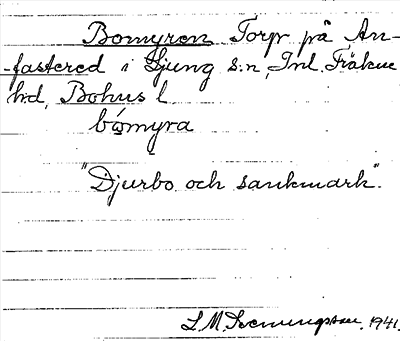 Bomyren Torp på An-
-fastered i Ljung s:n, Inl. Fräkne
h:d, Bohus l
bomyra
"Djurbo och sankmark".
L. M. Svenungsson. 1941.